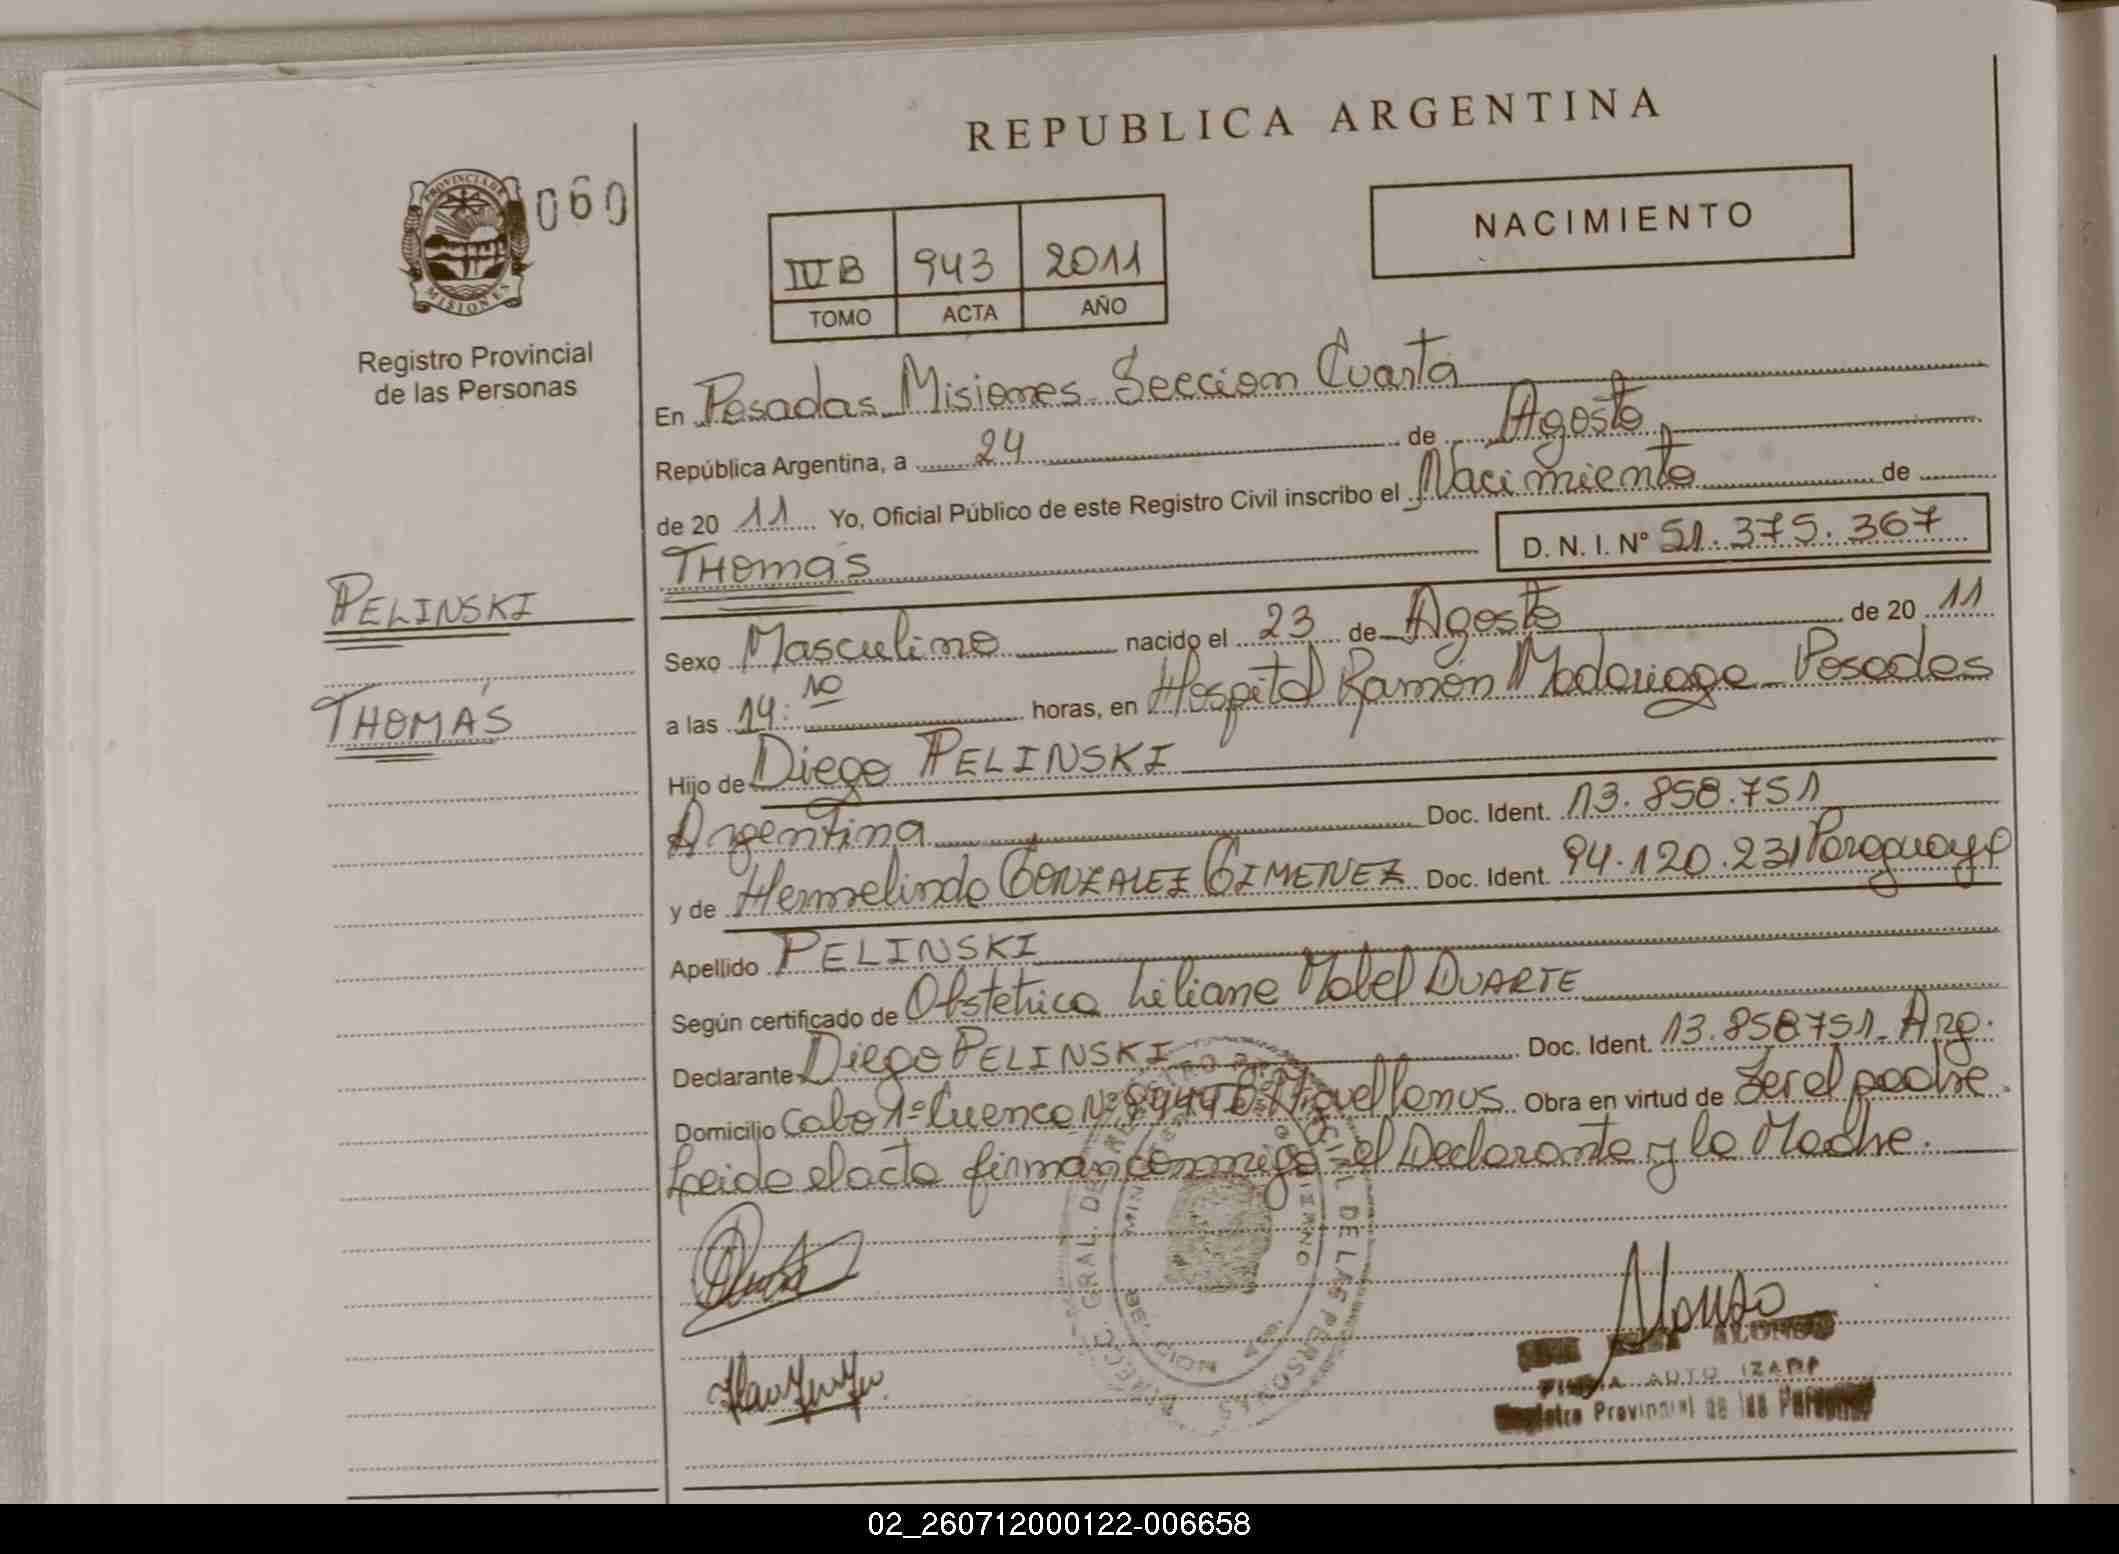 REPUBLICA ARGENTINA
PROVINCIA DE MISIONES
060
NACIMIENTO
IV B 943 2011
TOMO ACTA AÑO
Registro Provincial
de las Personas
En Posadas Misiones Seccion Cuarta
República Argentina, a 24 de Agosto
de 20 11 Yo, Oficial Público de este Registro Civil inscribo el Nacimiento de
THomás D. N. I. Nº 51.375.367
PELINSKI
THOMÁS
Sexo Masculino nacido el 23 de Agosto de 20 11
a las 14:10 horas, en Hospital Ramón Madariaga - Posadas
Hijo de Diego PELINSKI
Argentina Doc. Ident. 13.858.751
y de Hermelinda GONZALEZ GIMENEZ Doc. Ident. 94.120.231 Paraguaya
Apellido PELINSKI
Según certificado de Obstetrica Liliana Mabel DUARTE
Declarante Diego PELINSKI Doc. Ident. 13.858751 - Arg.
Domicilio Cabo 1º Cuenca Nº Obra en virtud de Ser el padre.
Leida el acta firman conmigo el Declarante y la Madre.
Alonso
ALONSO
FIRMA
Registro Provincial de las Personas
02_260712000122-006658